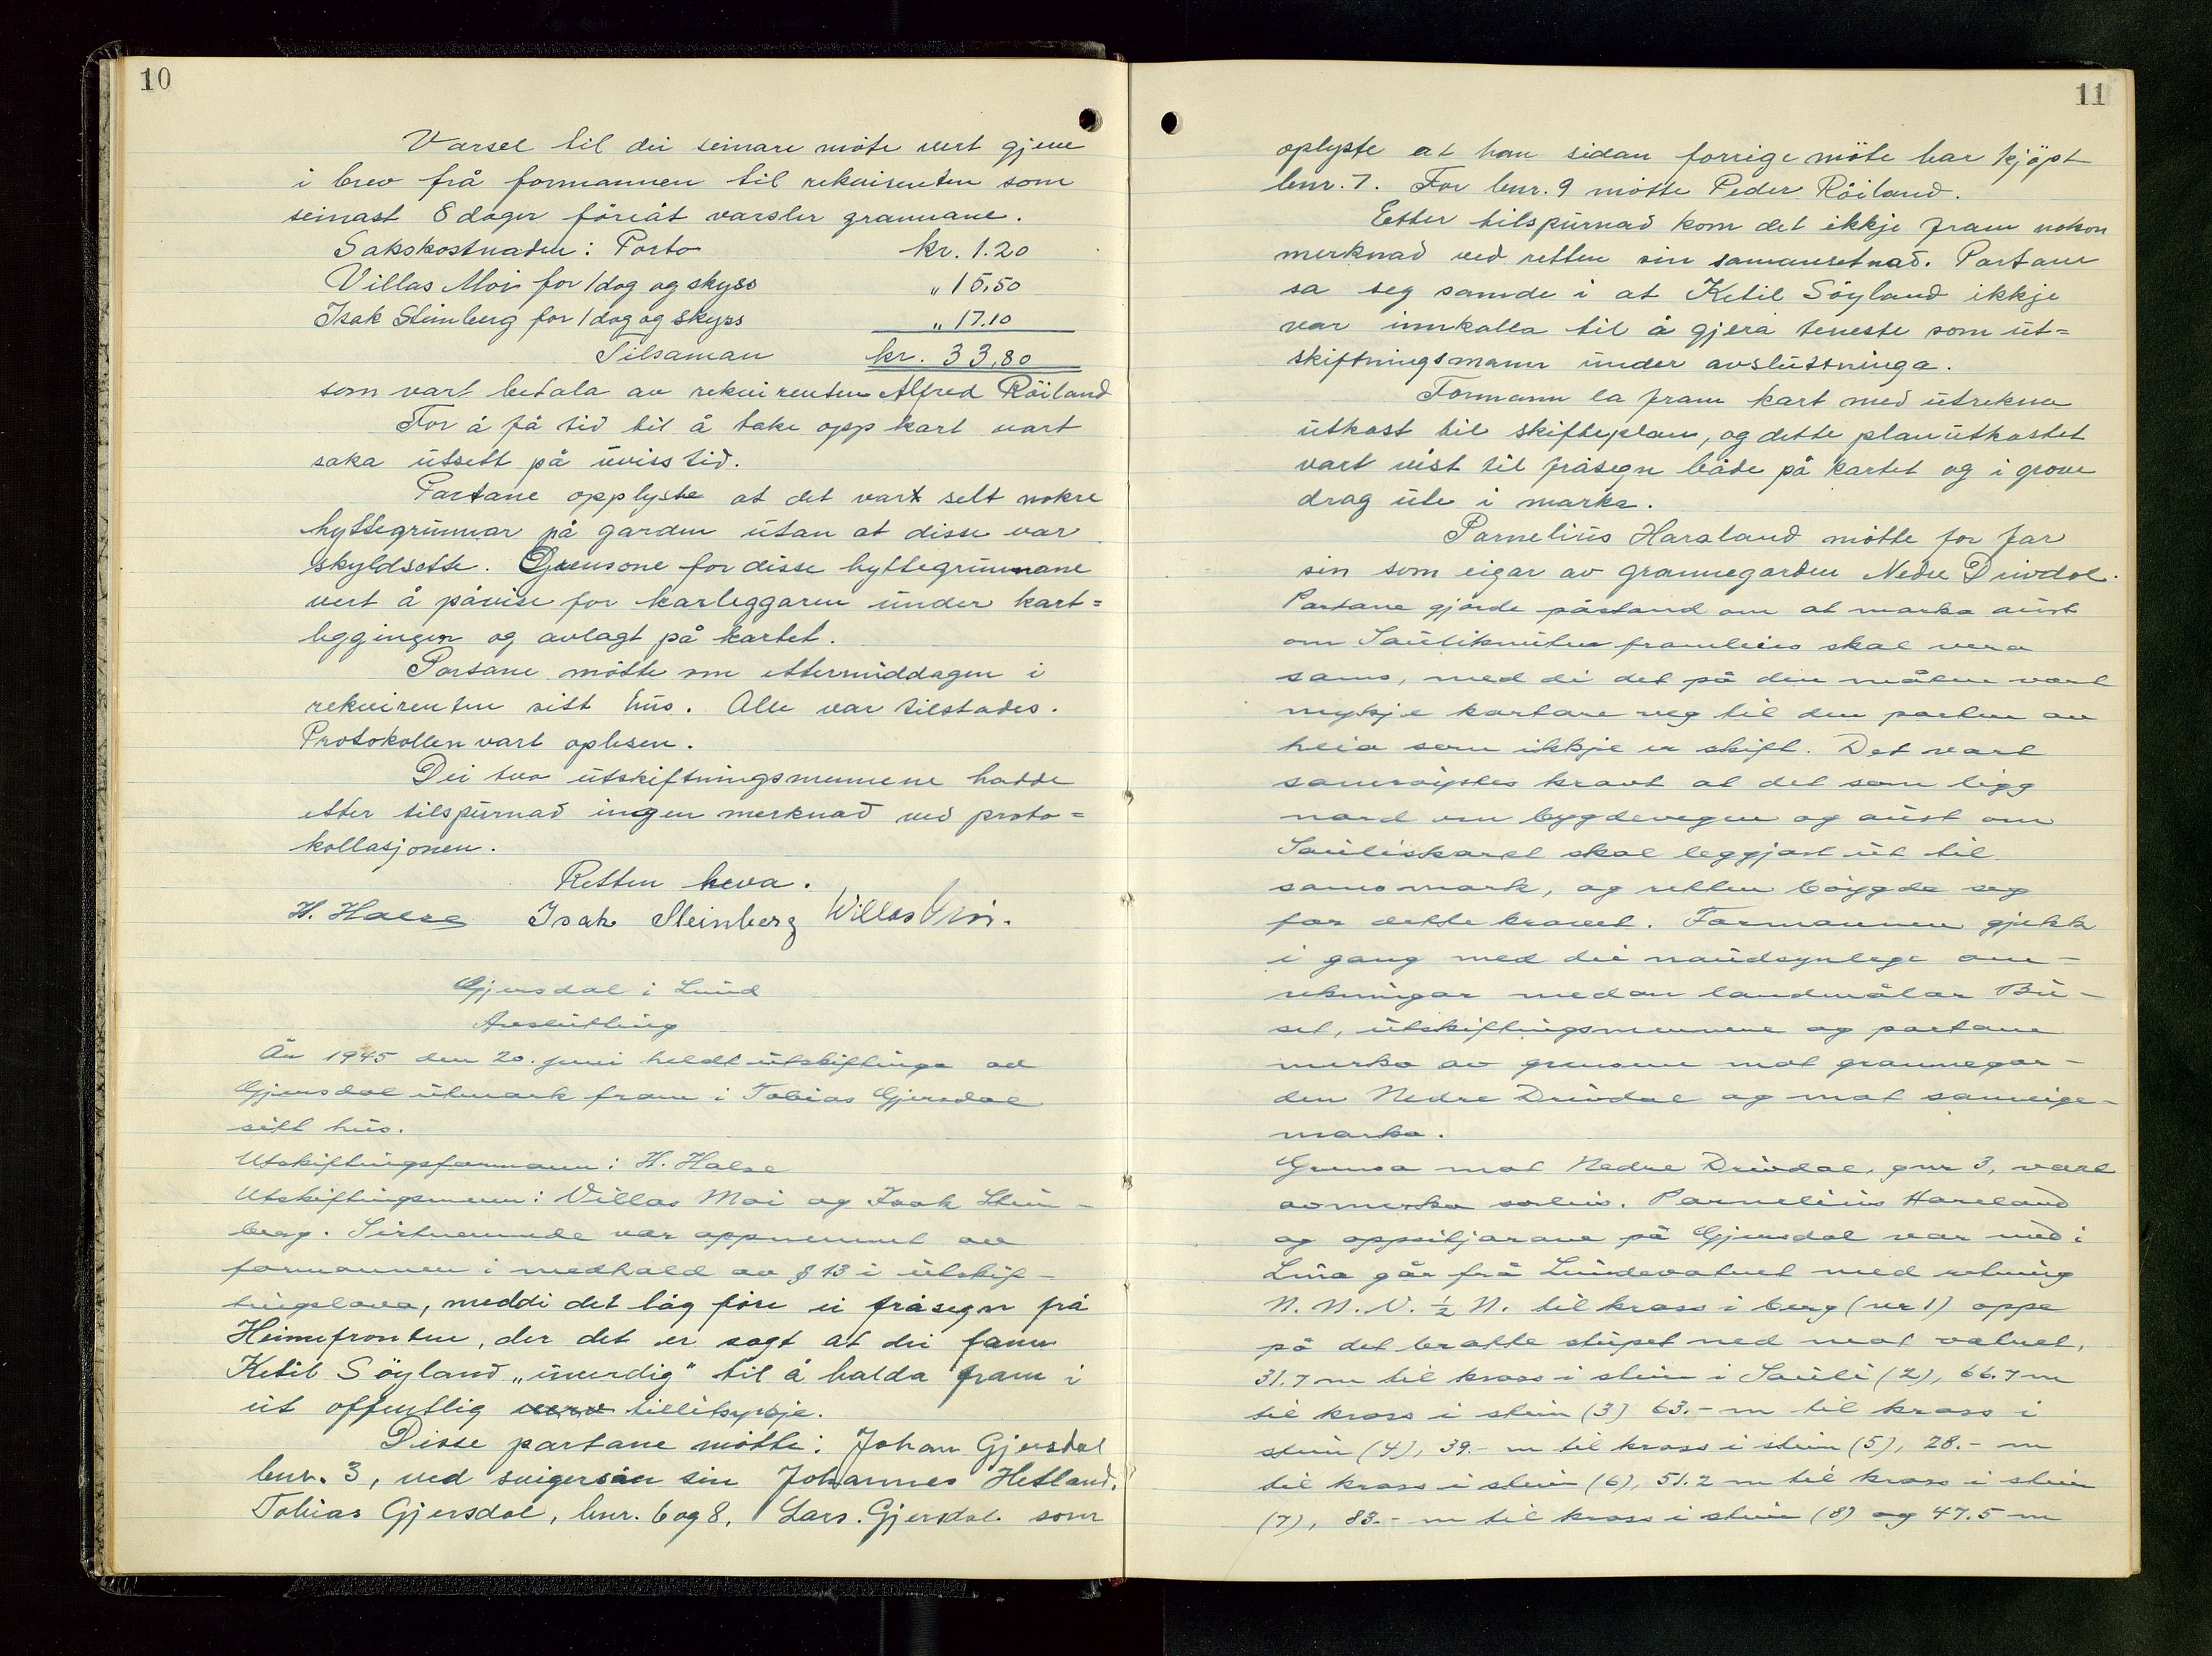 10
Varsel til dei seinare möte vert gjeve
i brev frå formannen til rekvirenten som
seinast 8 dager föreåt varsler grannane.
Sakskostnaden: Porto kr. 1.20
Villas Moi for 1 dag og skyss " 15,50
Isak Steinberg for 1 dag og skyss " 17.10
Tilsaman kr. 33,80
som vart betala av rekvirenten Alfred Röiland
For å få tid til å take opp kart vart
saka utsett på uviss tid.
Partane opplyste at det vart selt nokre
hyttegrunnar på garden utan at disse var
skyldsette. Grensone for disse hyttegrunnane
vert å påvise for karleggaren under kart=
leggingen og avlagt på kartet.
Partane møtte om ettermiddagen i
rekvirenten sitt hus. Alle var tilstades.
Protokollen vart oplesen.
Dei tvo utskiftningsmennene hadde
etter tilspurnad ingen merknad ved proto=
kollasjonen.
Retten heva.
H. Halse Isak Steinberg Willas Moi.
Gjersdal i Lund
Avslutting
År 1945 den 20. juni heldt utskiftinga av
Gjersdal utmark fram i Tobias Gjersdal
sitt hus.
Utskiftingsformann: H. Halse
Utskiftingsmenn: Villas Moi og Isak Stein-
berg. Sistnemnde var oppnemnt av
formannen i medhald av § 13 i utskif-
tingslova, meddi det låg føre ei fråsegn frå
Heimefronten, der det er sagt at dei fann
Ketil Söyland "uverdig" til å halda fram i
eit offentlig verv tillitsyrkje.
Disse partane møtte: Johan Gjersdal
bnr. 3, ved svigersön sin Johannes Hetland.
Tobias Gjersdal, bnr. 6 og 8, Lars Gjersdal som
11
oplyste at han sidan forrige möte har kjöpt
bnr. 7. For bnr. 9 møtte Peder Röiland.
Etter tilspurnad kom det ikkje fram nokon
merknad ved retten sin samansetnad. Partane
sa seg samde i at Ketil Söyland ikkje
var innkalla til å gjera teneste som ut=
skiftningsmann under avslutninga.
Formann la fram kart med utrekna
utkast til skifteplan, og dette planutkastet
vart vist til fråsegn både på kartet og i grove
drag ute i marka.
Parnelius Haraland møtte for far
sin som eigar av grannegarden Nedre Drivdal.
Partane gjorde påstand om at marka aust
om Sauliknuten framleies skal vera
sams, med di det på den måten vart
mykje kortare veg til den parten av
heia som ikkje er skift. Det vart
samrøystes kravt at det som ligg
nord om bygdevegen og aust om
Sauliskaret skal leggjast ut til
samsmark, og retten bøygde seg
for dette kravet. Formannen gjekk
i gang med dei naudsynlege om-
rekningar medan landmålar Bu-
set, utskiftingsmennene og partane
merka av grensene mot grannegar-
den Nedre Drivdal og mot sameige-
marka.
Grensa mot Nedre Drivdal, gnr 3, vart
avmerka soleis. Parnelius Hareland
og oppsitjarane på Gjersdal var med i
Lina går frå Lundevatnet med retning
N. N. V. ½ N. til kross i berg (nr 1) oppe
på det bratte stupet ned mot vatnet,
31.7 m til kross i stein i Sauli (2), 66.7 m
til kross i stein (3) 63.- m til kross i
stein (4), 39.- m til kross i stein (5), 28.- m
til kross i stein (6), 51.2 m til kross i stein
(7), 83.- m til kross i stein (8) og 47.5 m